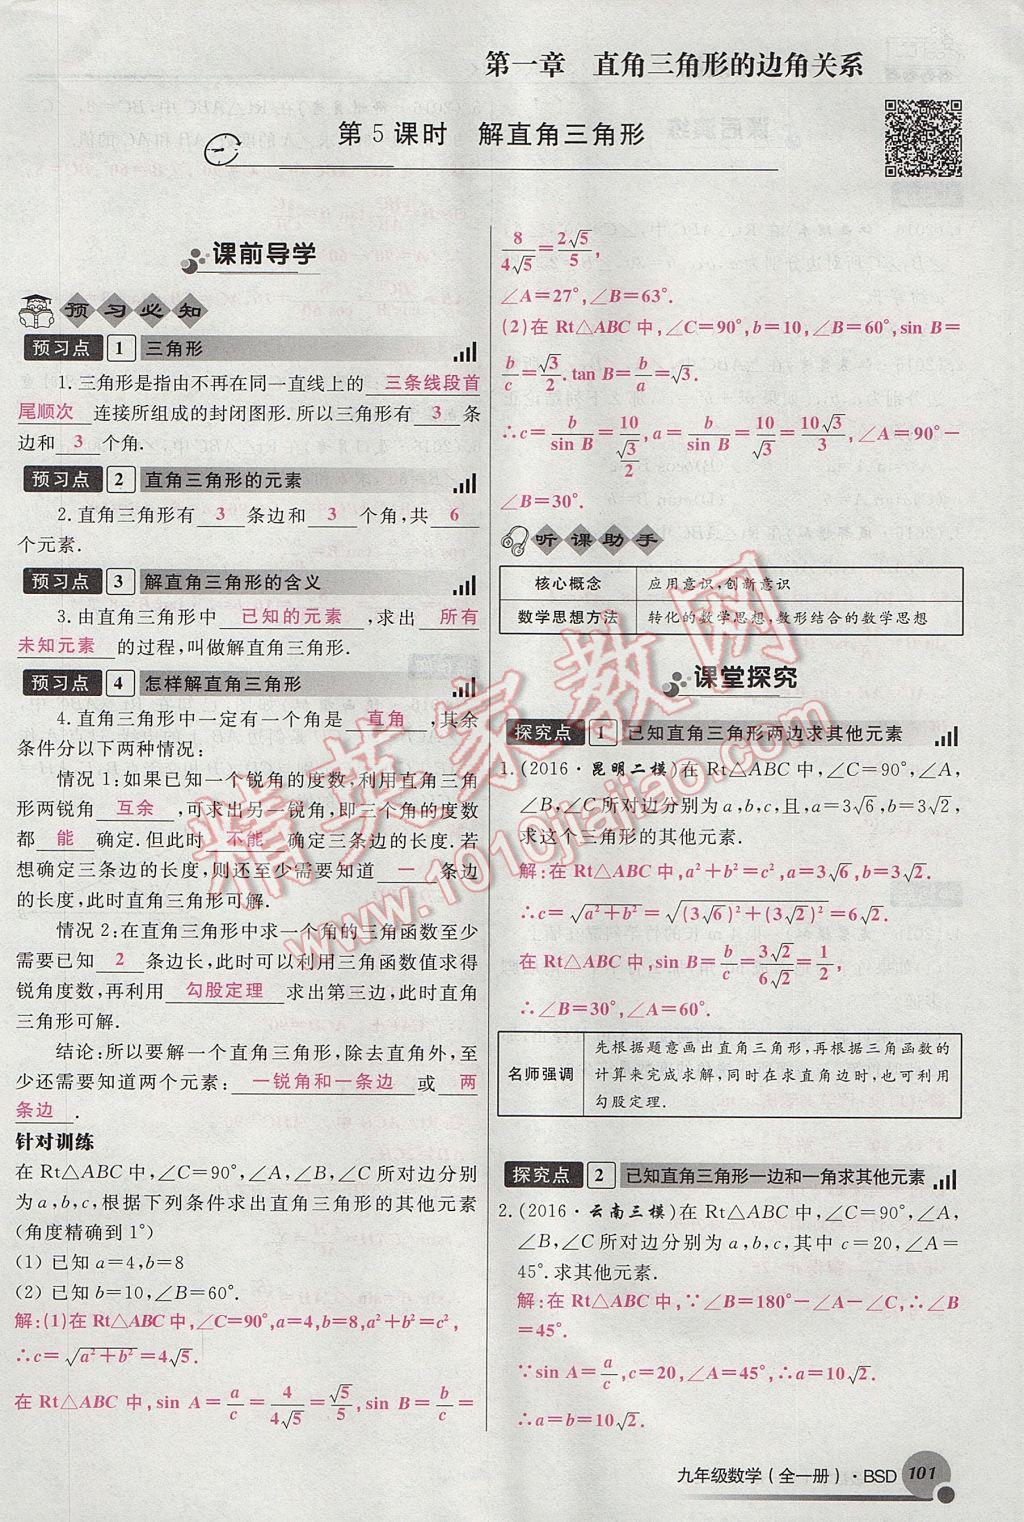 第一章　直角三角形的边角关系
第5课时　解直角三角形
课前导学
预习必知
预习点 1 三角形
1.三角形是指由不再在同一直线上的 三条线段首
尾顺次 连接所组成的封闭图形.所以三角形有 3 条
边和 3 个角.
预习点 2 直角三角形的元素
2.直角三角形有 3 条边和 3 个角,共 6
个元素.
预习点 3 解直角三角形的含义
3.由直角三角形中 已知的元素 ,求出 所有
未知元素 的过程,叫做解直角三角形.
预习点 4 怎样解直角三角形
4.直角三角形中一定有一个角是 直角 ,其余
条件分以下两种情况:
情况1:如果已知一个锐角的度数,利用直角三角
形两锐角 互余 ,可求出另一锐角,即三个角的度数
都 能 确定.但此时 不能 确定三条边的长度.若
想确定三条边的长度,则还至少需要知道 一 条边
的长度,此时直角三角形可解.
情况2:在直角三角形中求一个角的三角函数至少
需要已知 2 条边长,此时可以利用三角函数值求得
锐角度数,再利用 勾股定理 求出第三边,此时直角
三角形可解.
结论:所以要解一个直角三角形,除去直角外,至
少还需要知道两个元素: 一锐角和一条边 或 两
条边 .
针对训练
在Rt△ABC中,∠C=90°,∠A,∠B,∠C所对边分别
为a,b,c,根据下列条件求出直角三角形的其他元素
(角度精确到1°)
(1) 已知a=4,b=8
(2) 已知b=10,∠B=60°.
解:(1)在Rt△ABC中,∠C=90°,a=4,b=8,a²+b²=c²,
∴c=√(a²+b²)=4√5.
在Rt△ABC中,sin A=a/c=4/(4√5)=√5/5,sin B=b/c=
8/(4√5)=2√5/5,
∠A=27°,∠B=63°.
(2)在Rt△ABC中,∠C=90°,b=10,∠B=60°,sin B=
b/c=√3/2.tan B=b/a=√3.
∴c=b/sin B=10/(√3/2),a=b/sin B=10/√3=10√3/3,∠A=90°-
∠B=30°.
听课助手
核心概念 应用意识,创新意识
数学思想方法 转化的数学思想,数形结合的数学思想
课堂探究
探究点 1 已知直角三角形两边求其他元素
1.(2016·昆明二模)在Rt△ABC中,∠C=90°,∠A,
∠B,∠C所对边分别为a,b,c,且,a=3√6,b=3√2,
求这个三角形的其他元素.
解:在Rt△ABC中,a²+b²=c²,a=3√6,b=3√2.
∴c=√(a²+b²)=√((3√6)²+(3√2)²)=6√2.
在Rt△ABC中,sin B=b/c=3√2/6√2=1/2,
∴∠B=30°,∠A=60°.
名师强调 先根据题意画出直角三角形,再根据三角函数的
计算来完成求解,同时在求直角边时,也可利用
勾股定理.
探究点 2 已知直角三角形一边和一角求其他元素
2.(2016·云南三模)在Rt△ABC中,∠C=90°,∠A,
∠B,∠C所对边分别为a,b,c,其中c=20,∠A=
45°.求其他元素.
解:在Rt△ABC中,∵∠B=180°-∠A-∠C,∴∠B
=45°.
∵sin A=a/c,c=20,∠A=45°,∴a=10√2.
∴a=b=10√2.
九年级数学(全一册)·BSD 101
精英家教网
www.1010jiajiao.com